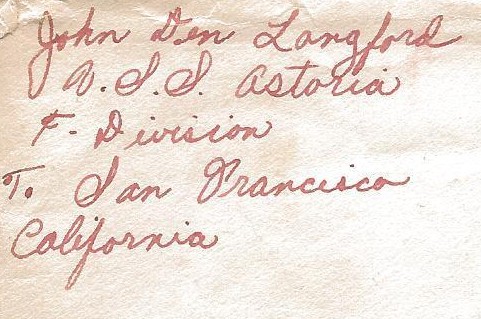 John Den Langford
U.S.S. Astoria
F. Division
T. San Francisco
California